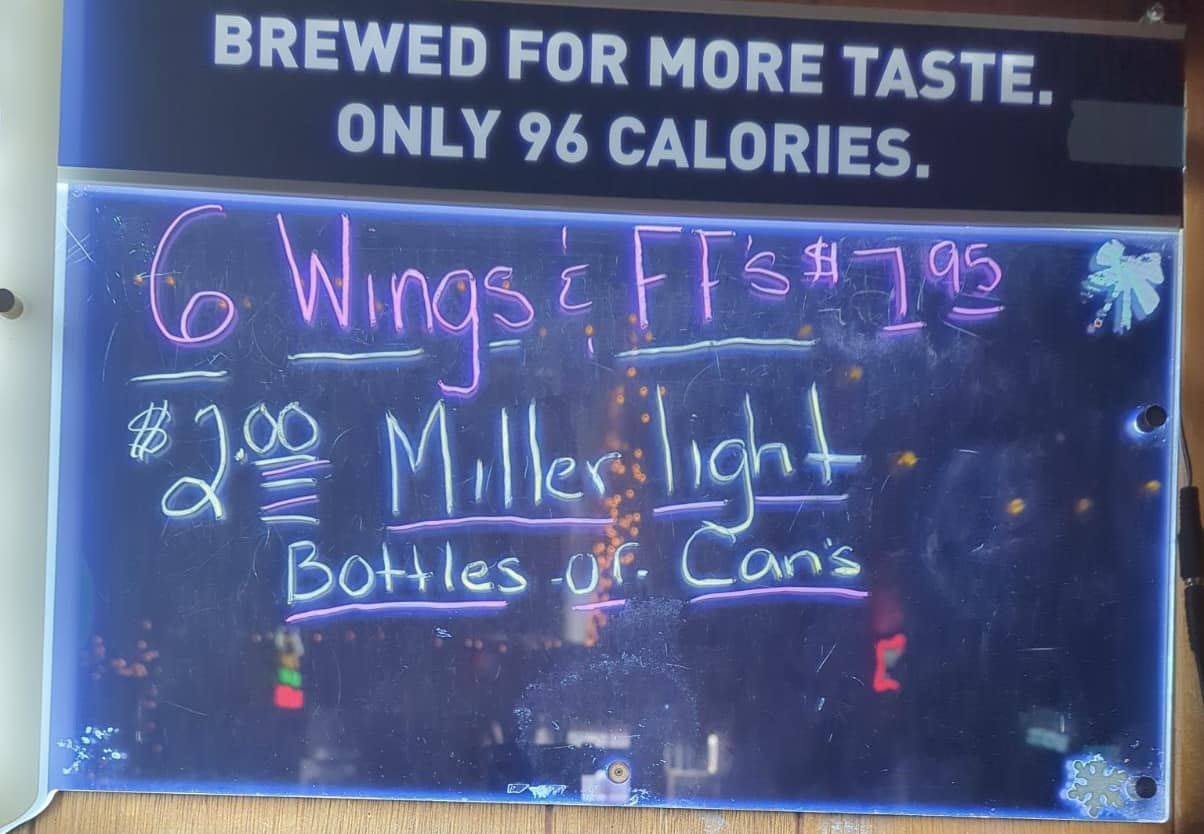 BREWED FOR MORE TASTE.
ONLY 96 CALORIES.
6 Wings & FF's $7.95
$2.00 Miller light
Bottles or Can's